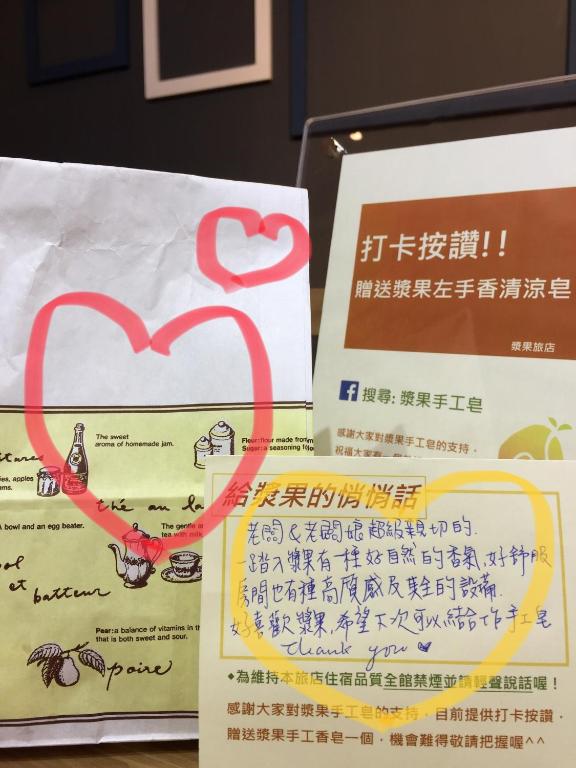 打卡按讚!!
贈送漿果左手香清涼皂
漿果旅店
搜尋: 漿果手工皂
感謝大家對漿果手工皂的支持，
The sweet
aroma of homemade jam.
thé au la
A bowl and an egg beater.
The gentle
tea with milk
batteur
et
Pear:a balance of vitamins in th
that is both sweet and sour.
poire
給漿果的悄悄話
老闆&老闆娘超級親切的.
一踏入漿果有一種好自然的香氣,好舒服
房間也有種高質感及齊全的設備.
好喜歡漿果,希望下次可以結合作手工皂
thank you
◆為維持本旅店住宿品質全館禁煙並請輕聲說話喔！
感謝大家對漿果手工皂的支持，目前提供打卡按讚，
贈送漿果手工香皂一個，機會難得敬請把握喔^^